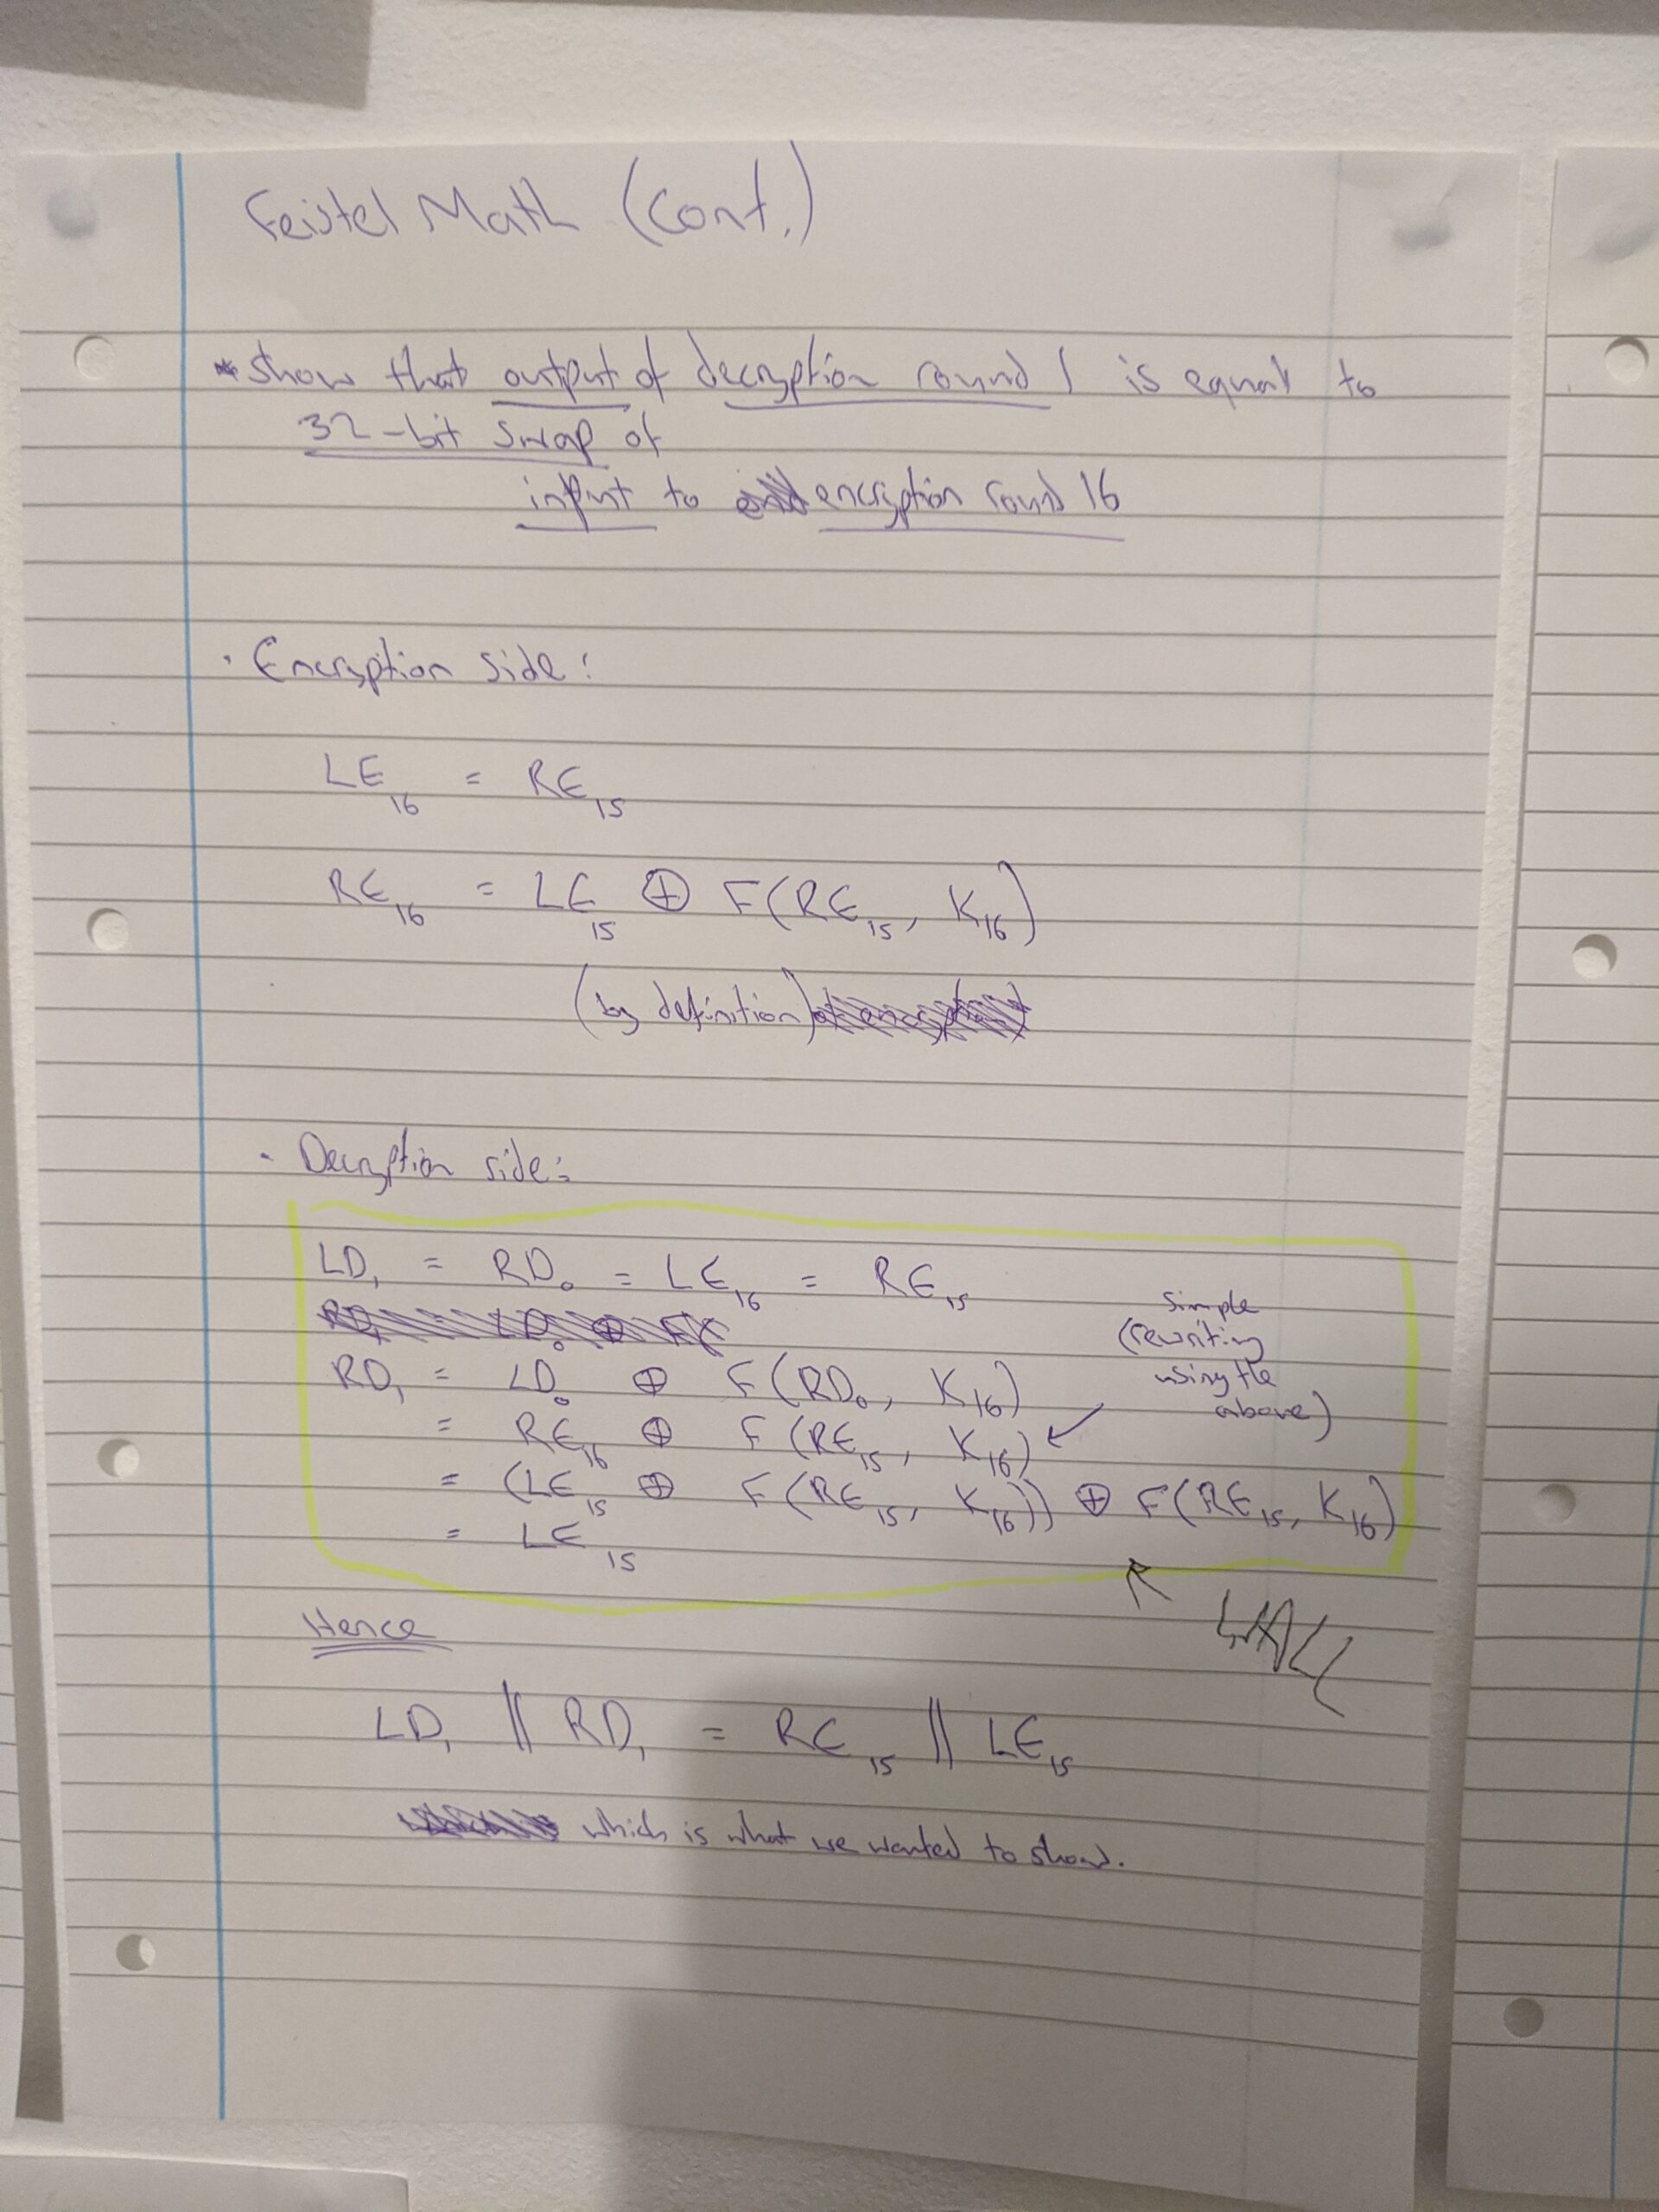 Feistel Math (cont.)
* show that output of decryption round 1 is equal to
32-bit swap of
input to encryption round 16
· Encryption side:
LE₁₆ = RE₁₅
RE₁₆ = LE₁₅ ⊕ F(RE₁₅, K₁₆)
(by definition)
· Decryption side:
LD₁ = RD₀ = LE₁₆ = RE₁₅
RD₁ = LD₀ ⊕ F(RD₀, K₁₆)
= RE₁₆ ⊕ F(RE₁₅, K₁₆)
= (LE₁₅ ⊕ F(RE₁₅, K₁₆)) ⊕ F(RE₁₅, K₁₆)
= LE₁₅
simple
(rewriting
using the
above)
WALL
Hence
LD₁ || RD₁ = RE₁₅ || LE₁₅
which is what we wanted to show.